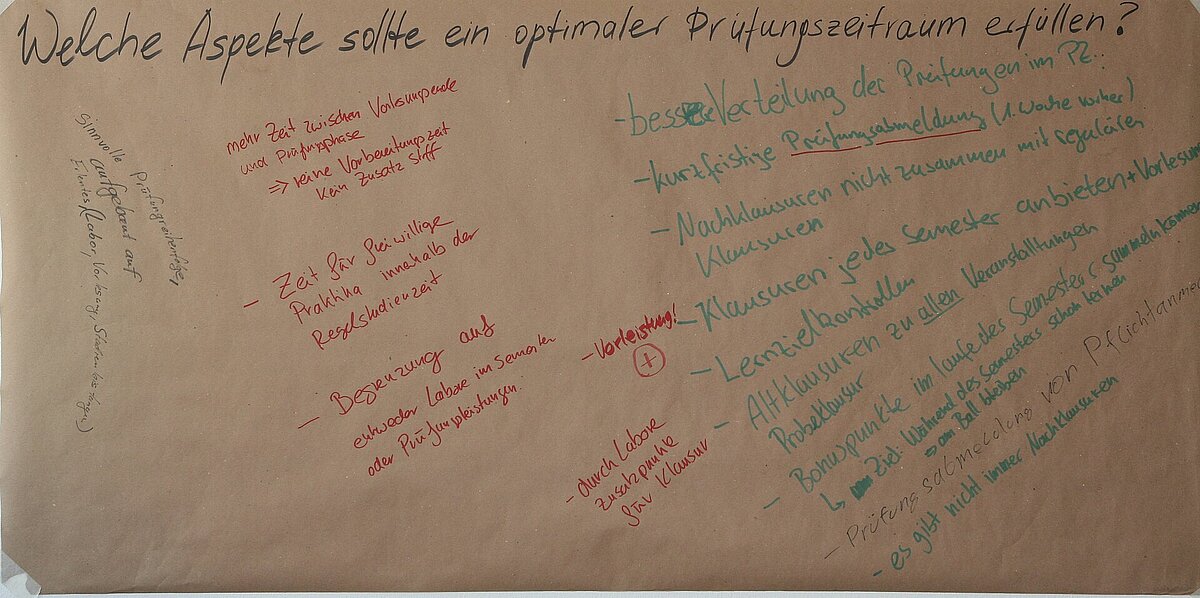 Welche Aspekte sollte ein optimaler Prüfungszeitraum erfüllen?
Sinnvolle Prüfungsreihenfolge,
aufgebaut auf
Erlerntes (Labor, Vorlesung,
mehr Zeit zwischen Vorlesungsende
und Prüfungsphase
=> reine Vorbereitungszeit
kein Zusatz Stoff
- Zeit für freiwillige
Praktika innehalb der
Regelstudienzeit
- Begrenzung auf
entweder Labore im Semester
oder Prüfungsleistungen.
- Vorleistung!
+
- durch Labore
Zusatzpunkte
für Klausur
- bessere Verteilung der Prüfungen im PZ..
- kurzfristige Prüfungsabmeldung (1. Woche vorher)
- Nachklausuren nicht zusammen mit regulären
Klausuren
- Klausuren jedes Semester anbieten + Vorlesun
- Lernzielkontrollen
- Altklausuren zu allen Veranstalltungen
Probeklausur
- Bonuspunkte im laufe des Semesters sammeln können
↳ Ziel: Während des Semesters schon lernen
⇒ am Ball bleiben
- Prüfungsabmeldung von Pflichtanme
- es gibt nicht immer Nachklausuren